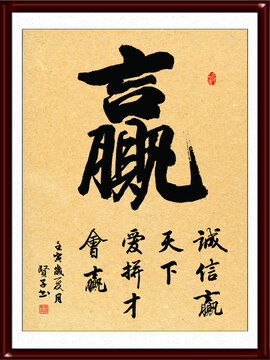 赢
誠信赢
天下
爱拼才
會赢
壬寅歲夏月
賢子书